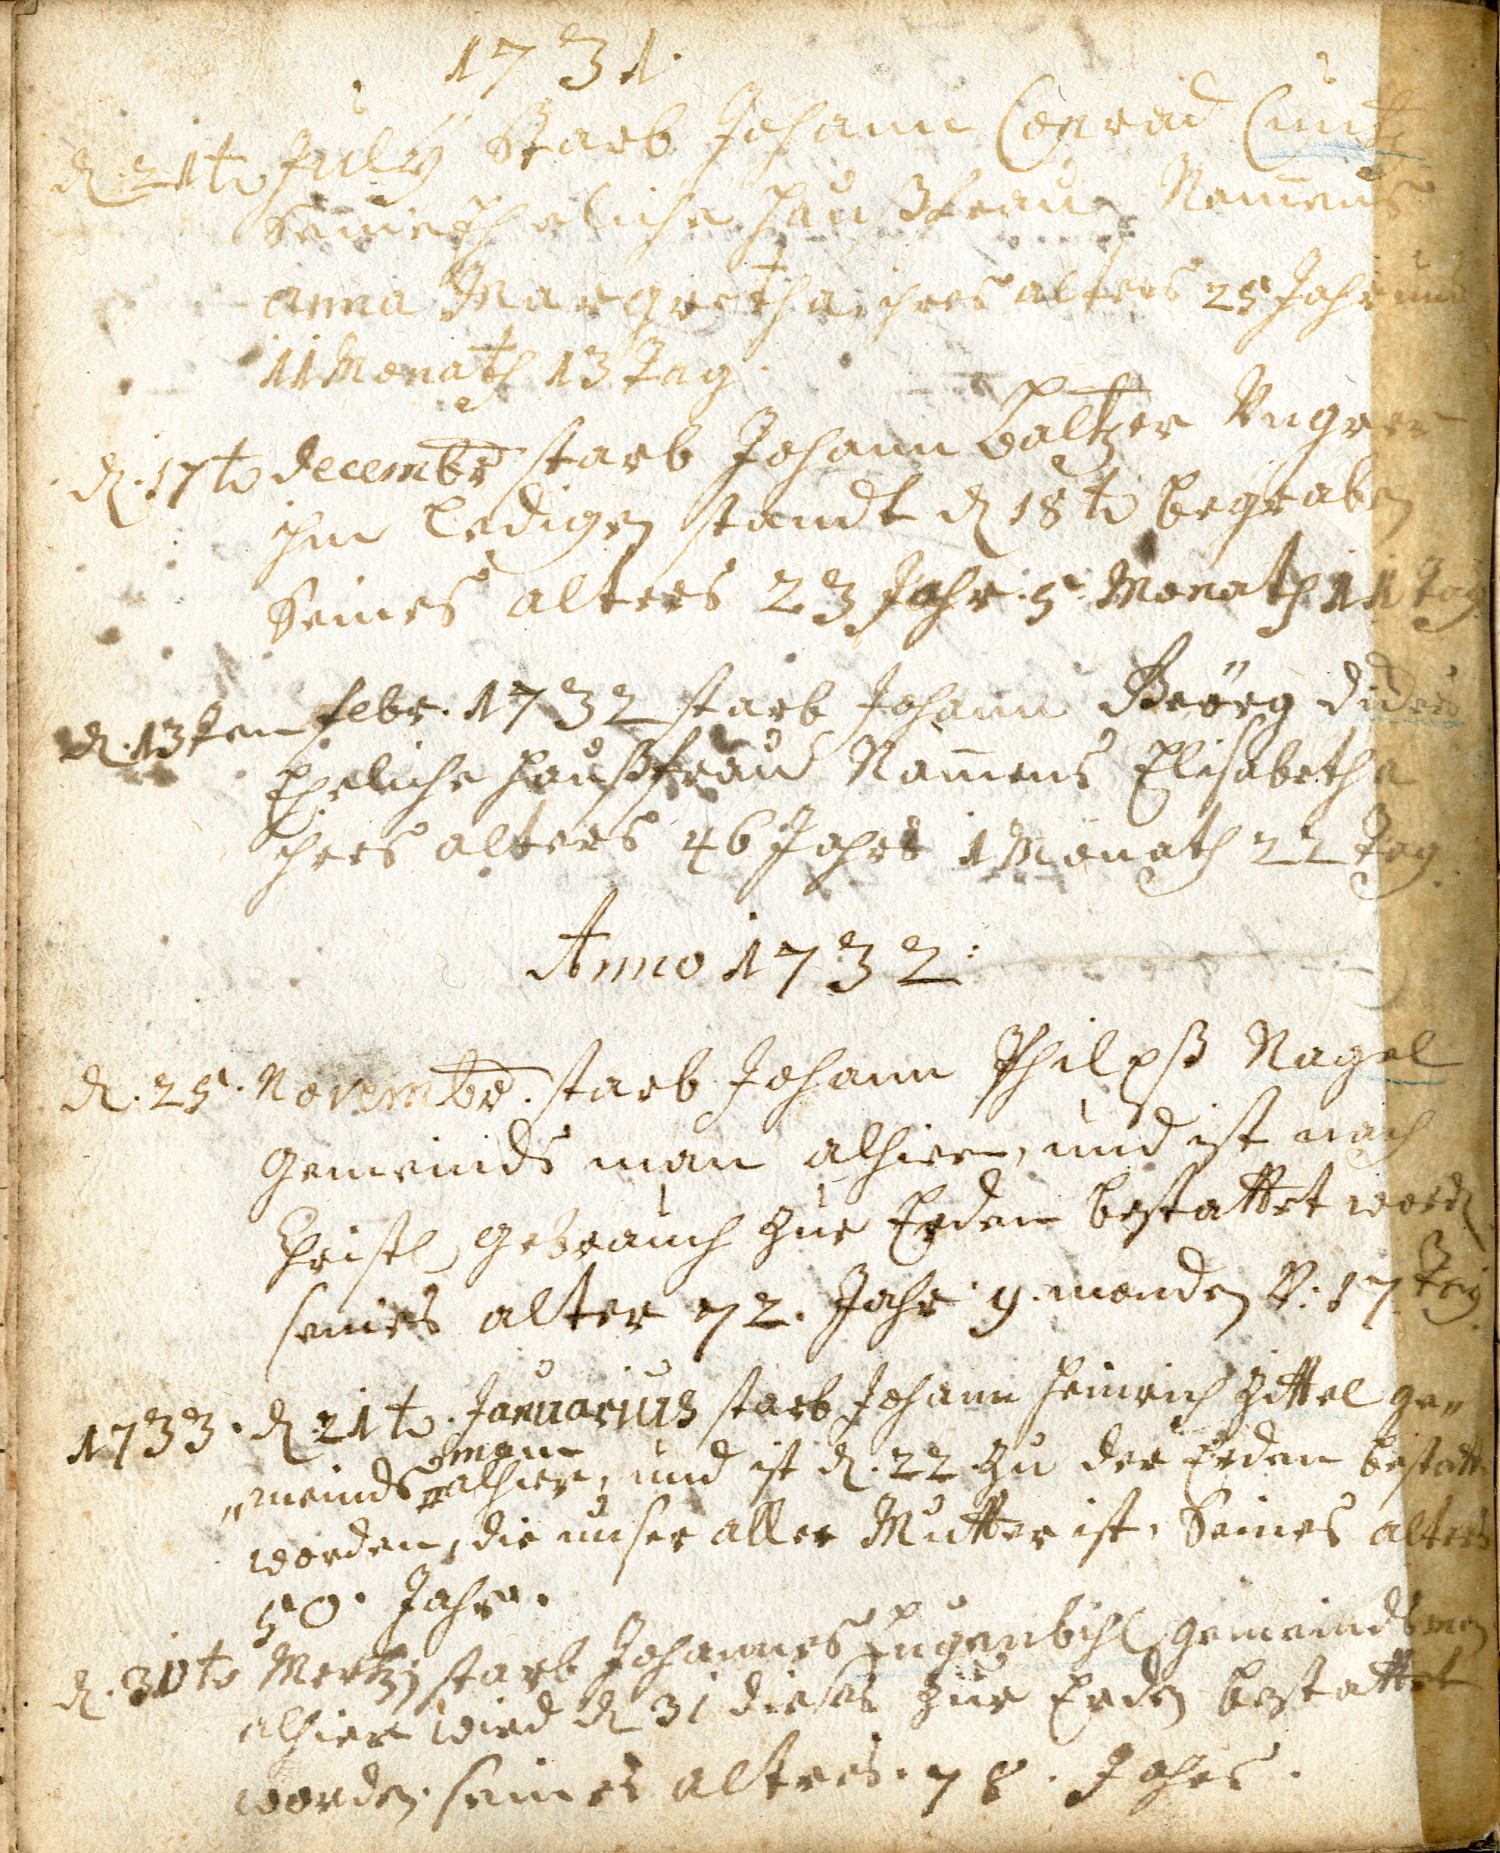 1731.
d. 21t July Starb Johann Conrad Cuntz
Seine Eheliche haußfrau Nam̅ens
anna Margretha, ihres alters 25 Jahr und
11 Monath 13 Tag.
d. 17t decembr starb Johann Baltzer Ungrer
ihm Ledigen standt d 18t begraben
Seines alters 23 Jahr. 5. Monath 11 Tag
d. 13ten febr. 1732 starb Johann Georg
Eheliche haußfrau Nam̅ens Elisabetha
ihres alters 46 Jahrs 1 Monath 22 Tag.
Anno 1732:
d. 25. Novembr. starb Johann Philpß Nagel
gemeinds man alhier, und ist nach
Christl. gebrauch zur Erden bestattet word.
seines alter 72. Jahr 9. monden V: 17 Tag.
1733. d. 21t. Januarius starb Johann Heinrich Zittel ge„
man
„meinds alhier, und ist d. 22 zu der Erden bestatt
worden, die unser aller Mutter ist. Seines alters
50. Jahr.
d. 30t Mertz starb Johannes Eugenbihl gemeindsman
alhier wird d 31 dieses zur Erden bestattet
worden. seines altres. 78. Jahrs.